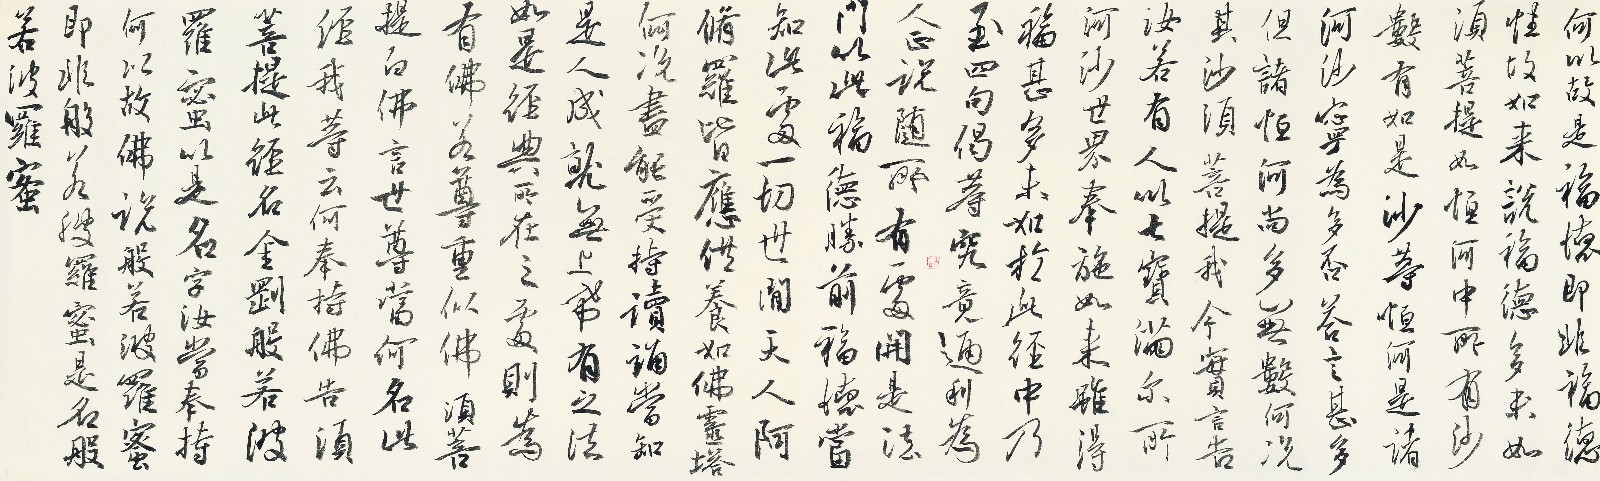 何以故是福德即非福德
性故如来説福德多未如
須菩提如恒河中所有沙
數有如是沙等恒河是諸
河沙寧為多否答言甚多
但諸恒河尚多無數何况
其沙須菩提我今實言告
汝若有人以七寶滿尔所
河沙世界奉施如来雖得
福甚多未如於此經中乃
至四句偈等究竟通利為
人正説随所有處開是法
門以此福德勝前福德當
知此處一切世間天人阿
脩羅皆應供養如佛靈塔
何况書能受持讀誦當知
是人成就無上希有之法
如是經典所在之處則為
有佛若尊重似佛須菩
提白佛言世尊當何名此
經我等云何奉持佛告須
菩提此經名金剛般若波
羅蜜以是名字汝當奉持
何以故佛説般若波羅蜜
即非般若波羅蜜是名般
若波羅蜜